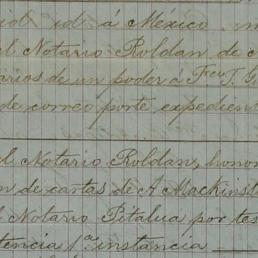 id id á México
l Notario Roldan de c
arios de un poder á Fco J. G
de correo porte expedien
l Notario Roldan, hono
n de cartas de A Mackinst
l Notario Pitalua por tes
tencia 1ª instancia